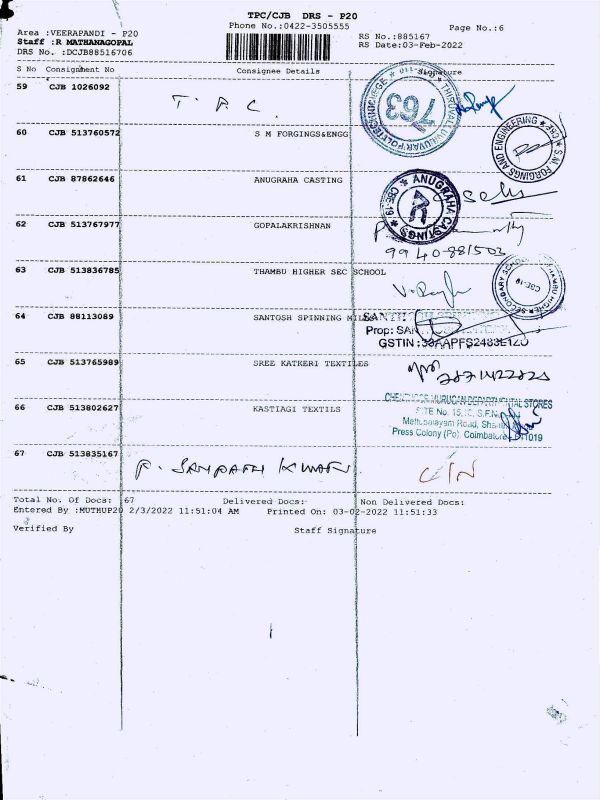 TPC/CJB DRS - P20
Phone No.:0422-3505555
Page No.:6
Area :VEERAPANDI - P20
Staff :R MATHANAGOPAL
DRS No. :DCJB88516706
RS No.:885167
RS Date:03-Feb-2022
S No Consignment No Consignee Details Signature
59 CJB 1026092 T. P. C.
763
60 CJB 513760572 S M FORGINGS&ENGG
FORGINGS AND ENGINEERING
61 CJB 87862646 ANUGRAHA CASTING
ANUGRAHA CASTINGS CBE-19
R
62 CJB 513767977 GOPALAKRISHNAN
9940881502
63 CJB 513836785 THAMBU HIGHER SEC SCHOOL
CBE-19
64 CJB 88113089 SANTOSH SPINNING MILLS
Prop: SAN
GSTIN :
65 CJB 513765989 SREE KATKERI TEXTILES
66 CJB 513802627 KASTIAGI TEXTILS
MURUGAN DEPARTMENTAL STORES
SITE No. 15,
Mettupalayam Road,
Press Colony (Po), Coimbatore
67 CJB 513835167 P. SAMPATH KUMAR
Total No. Of Docs: 67 Delivered Docs: Non Delivered Docs:
Entered By :MUTHUP20 2/3/2022 11:51:04 AM Printed On: 03-02-2022 11:51:33
Verified By Staff Signature